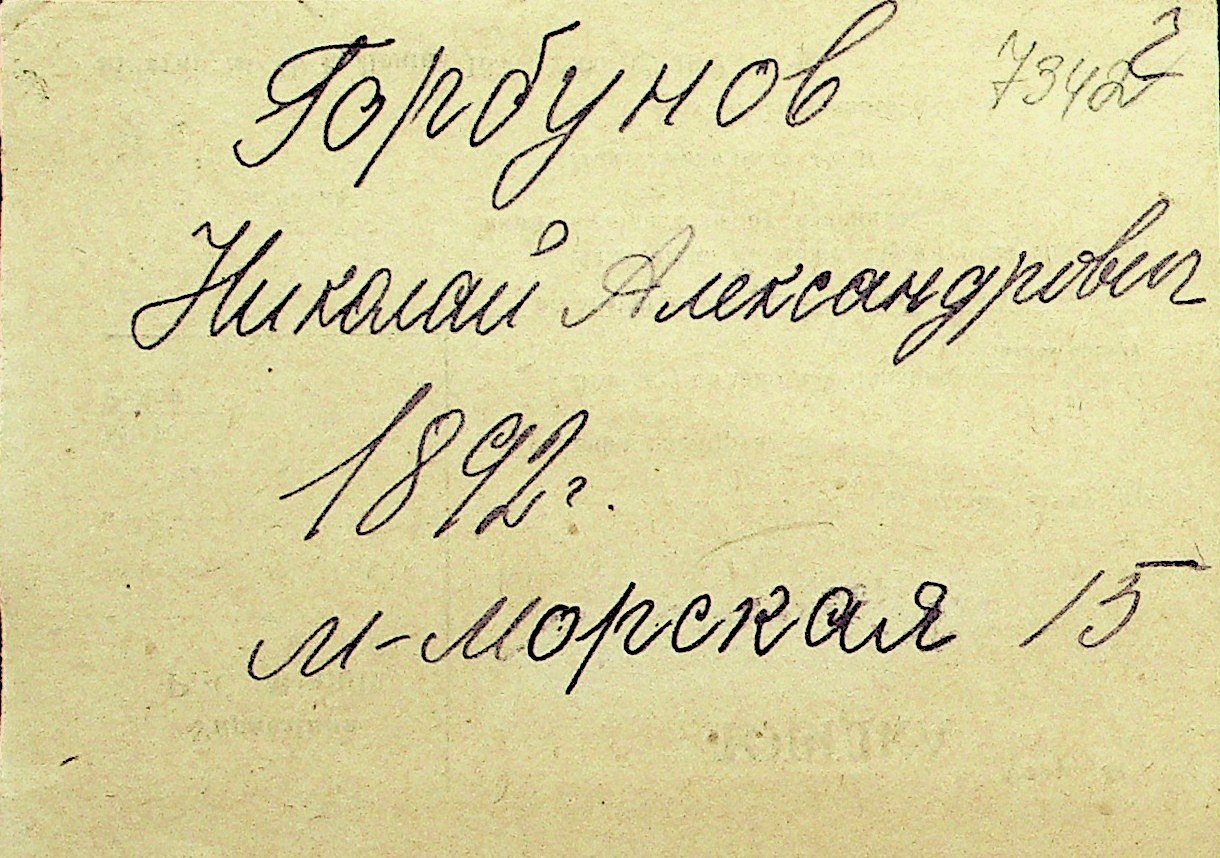 Горбунов 7342
Николай Александрович
1892 г.
м-морская 15